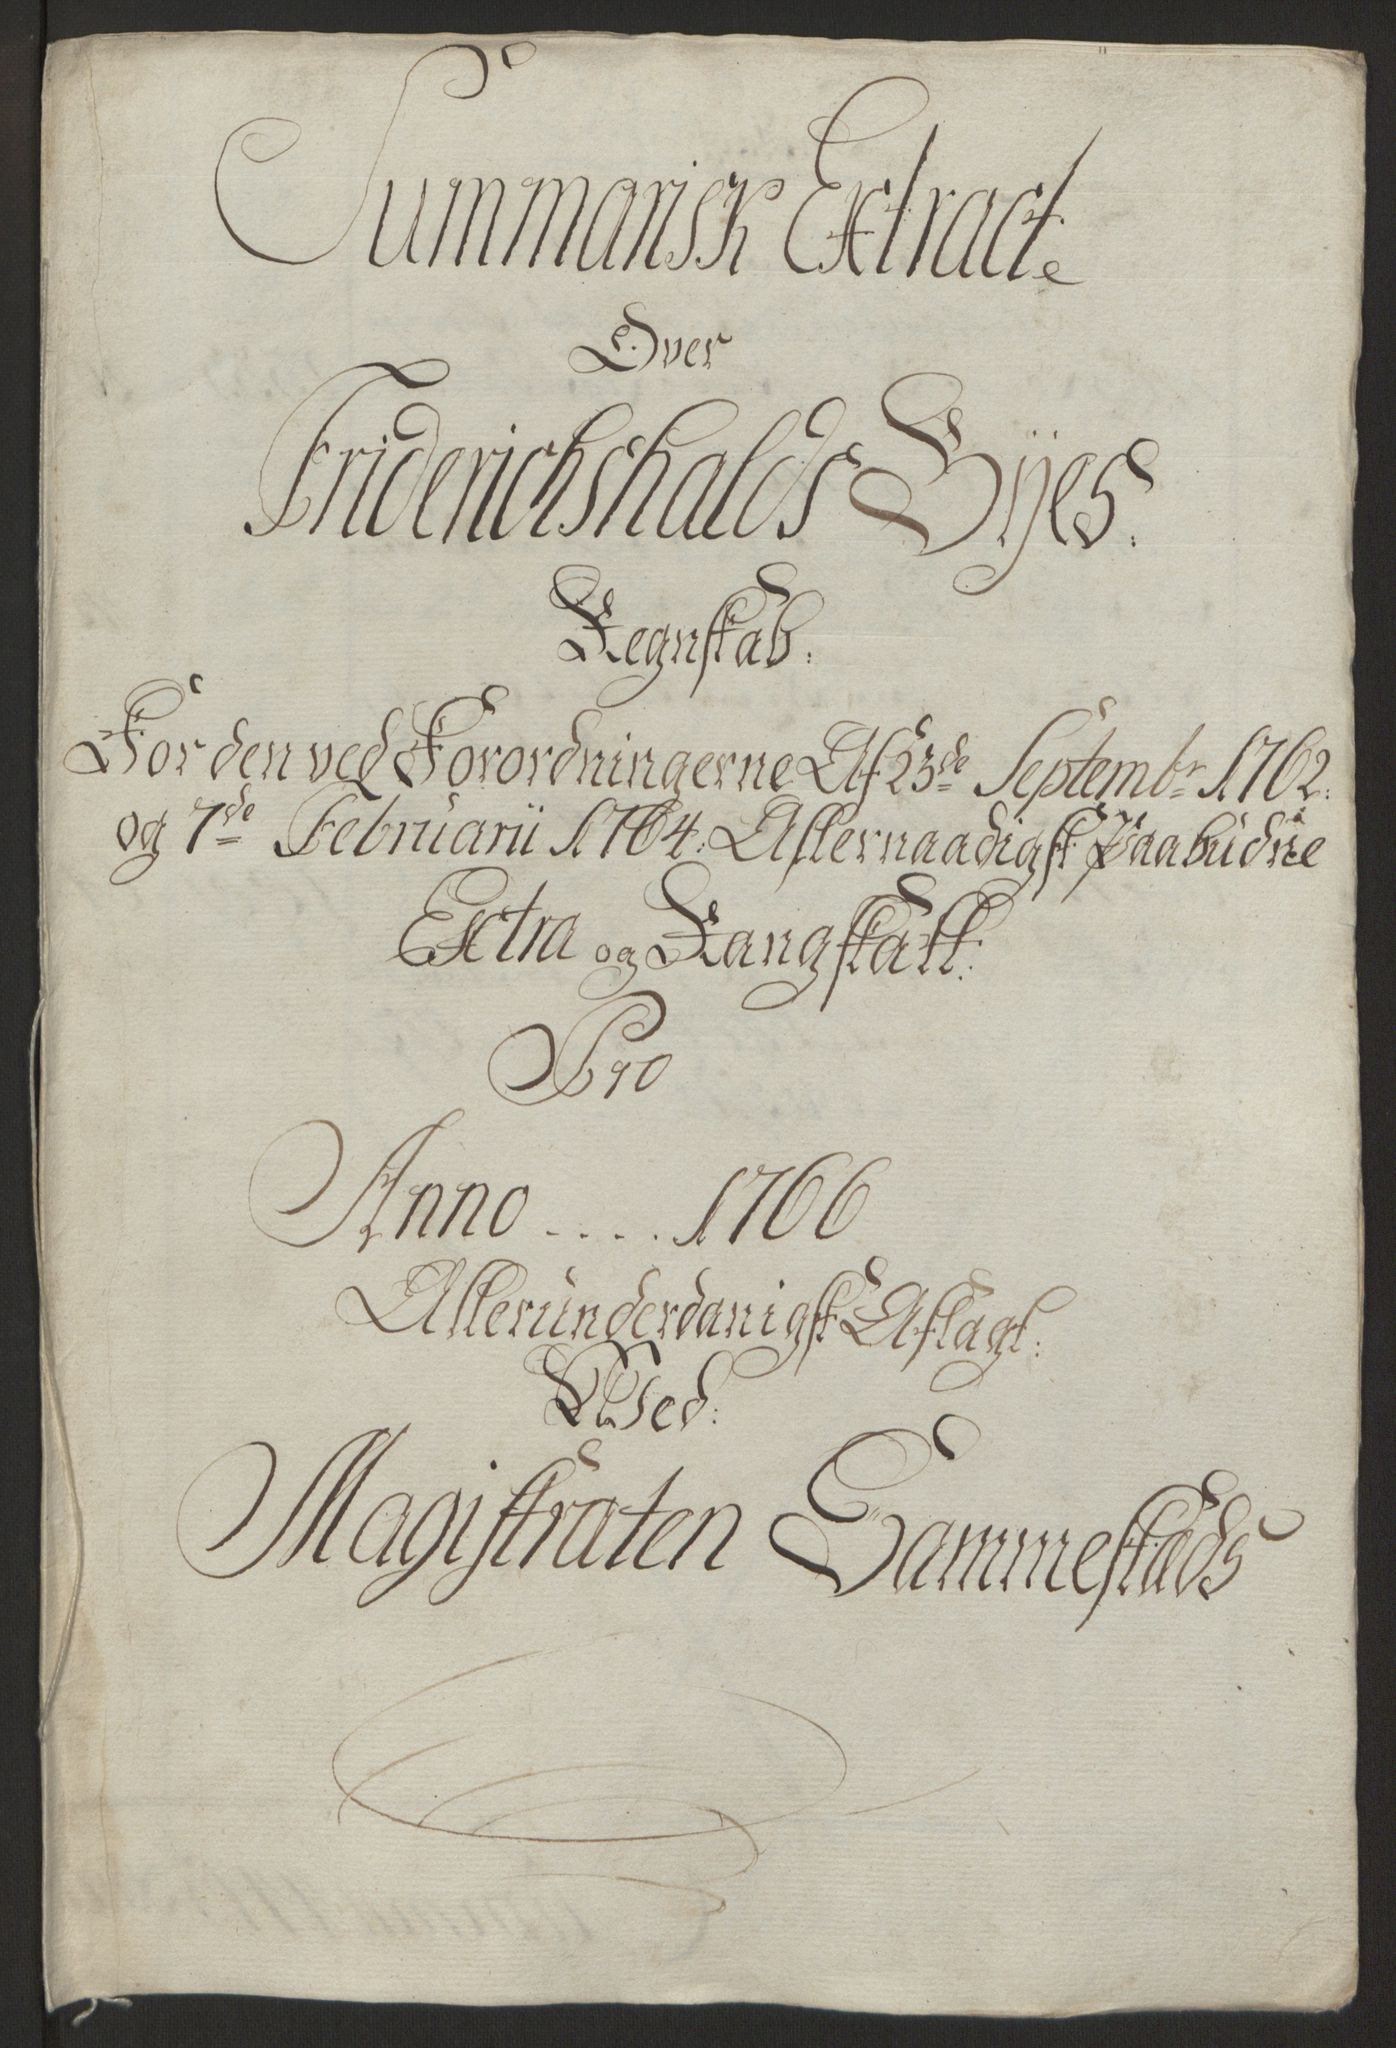 Summarisk Extract
Over
Friderichshalds Byes
Regnskab:
For den ved Forordningerne Af 23de Septembr 1762.
og 7de Februarii 1764. Allernaadigst Paabudne
Extra og Rangskatt:
Pro
Anno .... 1766
Allerunderdanigst Aflagt:
Med:
Magistraten Sammestæds